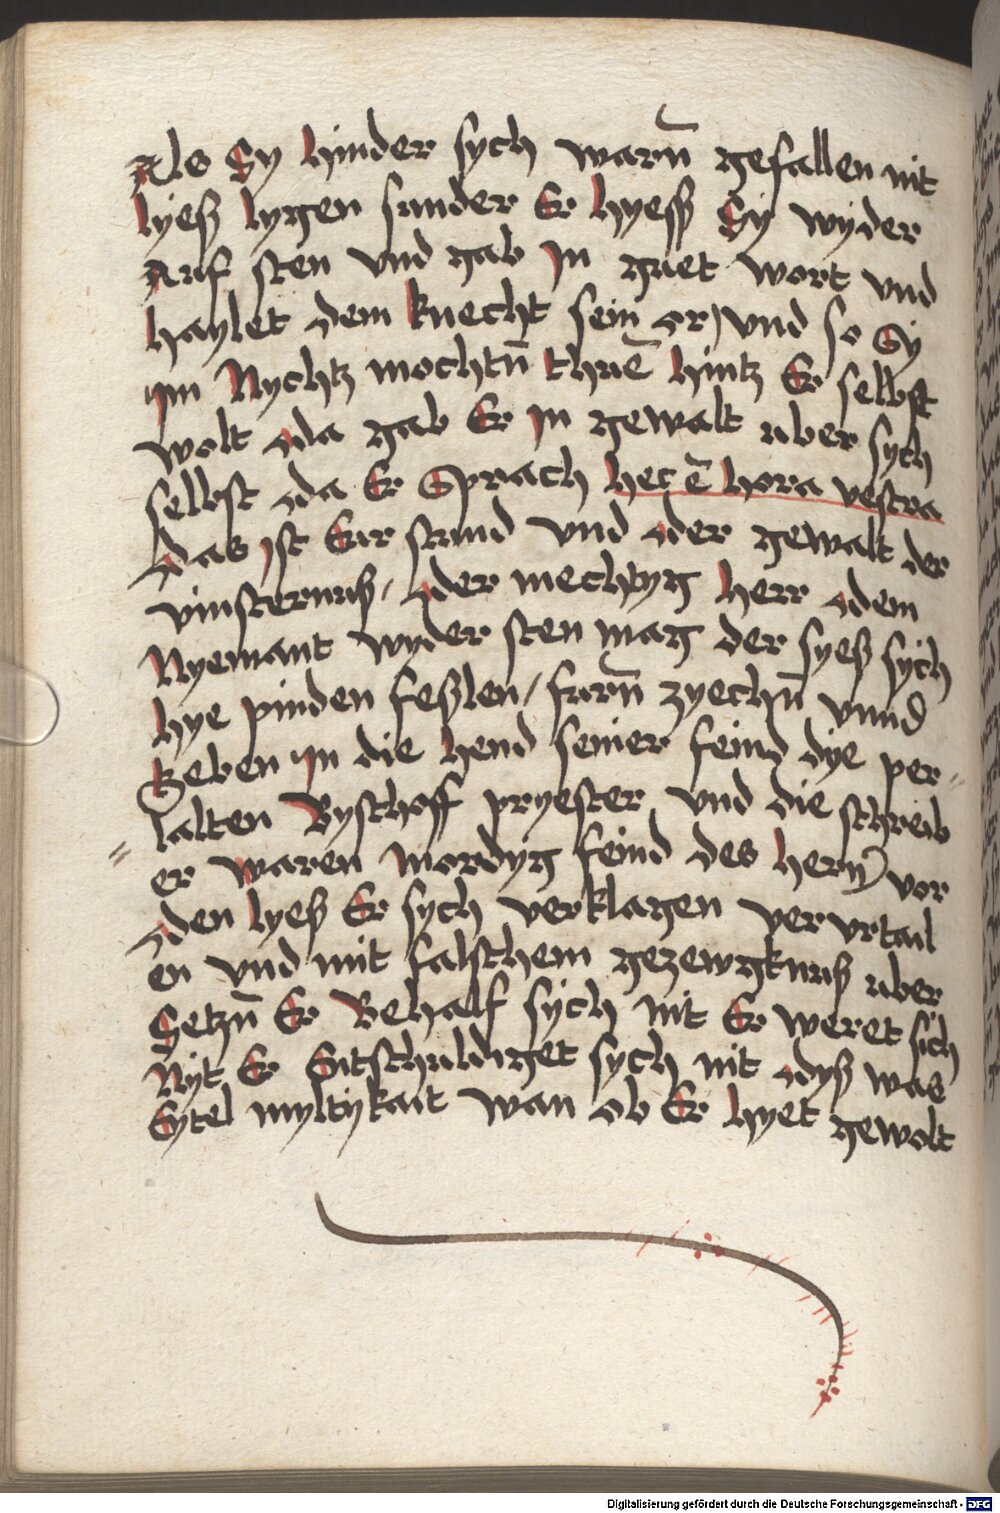 Als Sy hinder sych warn̄ gefallen nit
lyeß lygen sunder Er hyeß Sy wyder
Auf sten vnd gab In guet wort vnd
haylet dem knecht sein or) vnd so Sy
Im Nychtz mochtn̄ thuē hintz Er selbst
wolt da gab Er In gewalt uber sych
selbst da Er Sprach hec ē hora vestra
Das ist Eur stund vnd der gewalt der
vinsternuß / der mechtyg herr dem
Nyemant wyder sten mag der lyeß sych
hye pinden feßlen / furn̄ zyechn̄ vnnd
Geben In die hend seiner feind dye per⸗
lalten Bysthoff pryester vnd die schreib
⸗er waren mordyg feind des hern) vor
den lyeß Er sych verklagen ver vrtail
en vnd mit falschem gezewgknuß uber
Setzn̄ Er Behalf sych nit Er weret sich
Nyt Er Entschuldiget sych nit dyß was
Eytel myltykait wan ob Er hyet gewolt
Digitalisierung gefördert durch die Deutsche Forschungsgemeinschaft - DFG